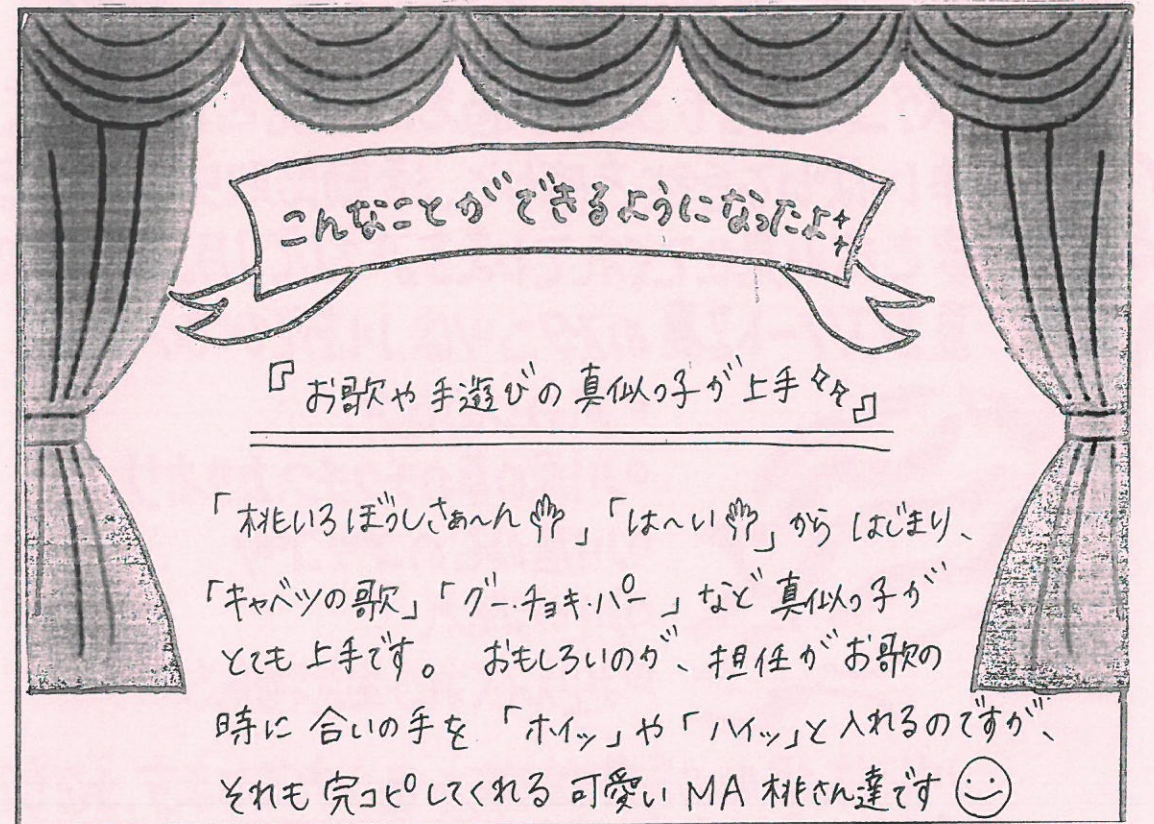 こんなことができるようになったよ
『お歌や手遊びの真似っ子が上手』
「桃いろぼうしさぁ〜ん」「は〜い」からはじまり、
「キャベツの歌」「グー・チョキ・パー」など真似っ子が
とても上手です。おもしろいのが、担任がお歌の
時に合いの手を「ホイッ」や「ハイッ」と入れるのですが、
それも完コピしてくれる可愛いMA桃さん達です